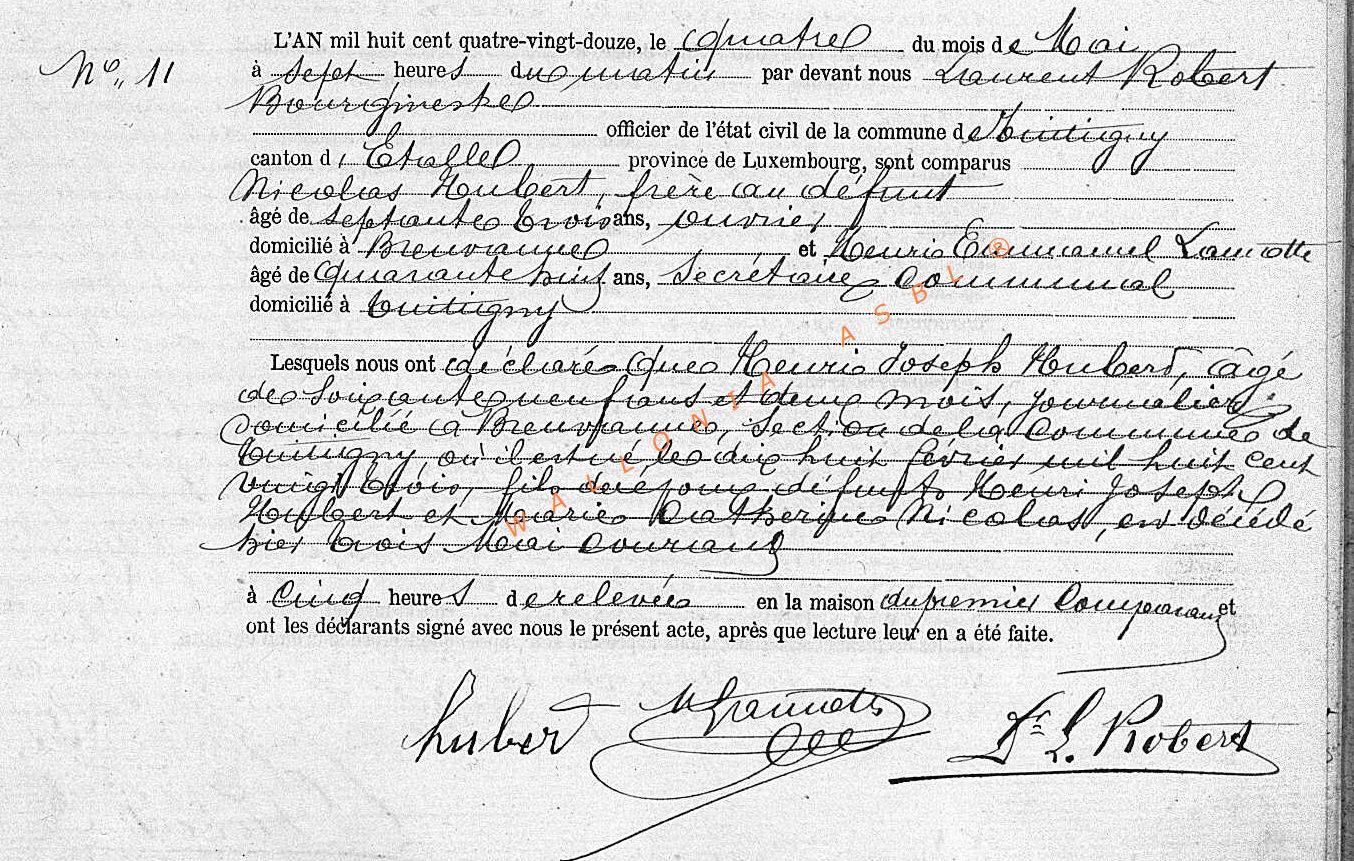 No. 11
L'AN mil huit cent quatre-vingt-douze, le quatre du mois de Mai
à sept heures du matin par devant nous Laurent Robert
Bourgmestre
officier de l'état civil de la commune de Tintigny
canton d'Etalle province de Luxembourg, sont comparus
Nicolas Hubert, frère au défunt
âgé de septante trois ans, ouvrier
domicilié à Breuvanne et Henri Emmanuel Lamotte
âgé de quarante huit ans, Secrétaire Communal
domicilié à Tintigny
Lesquels nous ont déclaré que Henri Joseph Hubert, âgé
de soixante neuf ans et deux mois, journalier,
domicilié à Breuvanne, section de la Commune de
Tintigny, où il est né, le dix huit février mil huit cent
vingt trois, fils des époux défunts Henri Joseph
Hubert et Marie Catherine Nicolas, est décédé
hier trois Mai courant
à cinq heures de relevée en la maison du premier comparant et
ont les déclarants signé avec nous le présent acte, après que lecture leur en a été faite.
huber
Dr L. Robert
WALLONIA ASBL ®